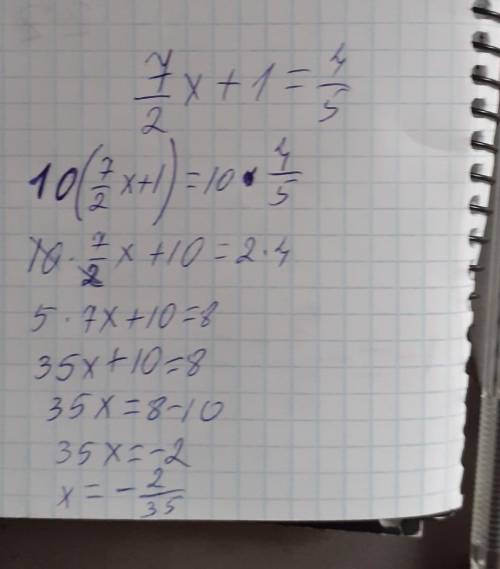 7/2 x + 1 = 4/5
10(7/2 x + 1) = 10 · 4/5
10 · 7/2 x + 10 = 2 · 4
5 · 7x + 10 = 8
35x + 10 = 8
35x = 8 - 10
35x = -2
x = - 2/35